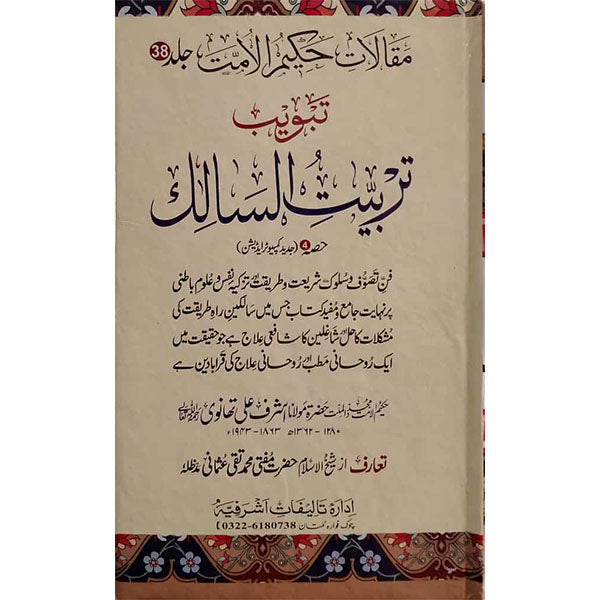 مقالات حکیم الامت جلد 38
تبویب
تربیت السالک
حصہ 4 (جدید کمپیوٹر ایڈیشن)
فن تصوف و سلوک شریعت و طریقت اور تزکیہ نفس و علوم باطنی
پر نہایت جامع و مفید کتاب جس میں سالکین راہ طریقت کی
مشکلات کا حل اور شاغلین کا شافعی علاج ہے جو حقیقت میں
ایک روحانی مطب اور روحانی علاج کی قرابادین ہے
حکیم الامت مجدد الملت حضرۃ مولانا اشرف علی تھانوی
۱۲۸۰ - ۱۳۶۲ھ ۱۸۶۳ - ۱۹۴۳ء
تعارف از شیخ الاسلام حضرت مفتی محمد تقی عثمانی مدظلہ
ادارہ تالیفات اشرفیہ
چوک فوارہ ملتان 0322-6180738